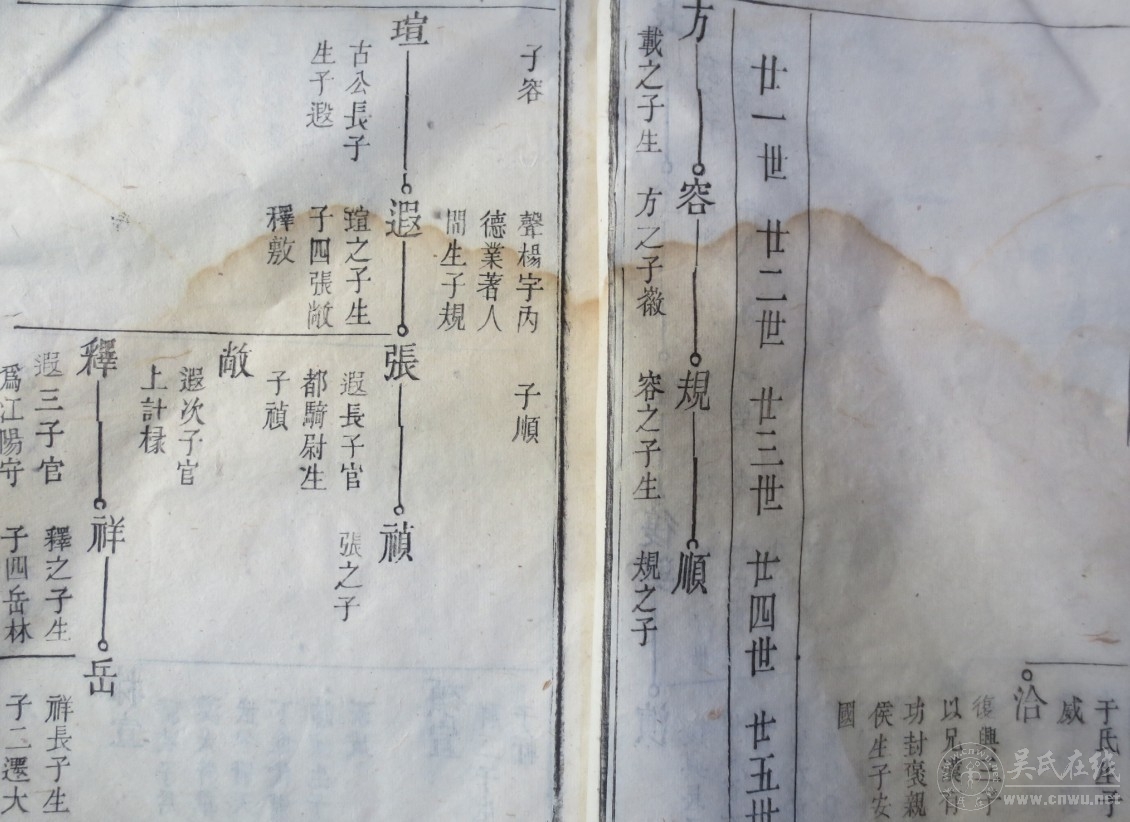 于氏生子
威
洽
復興
以兄
有
功封褒親
侯生子安
國
廿一世
廿二世
廿三世
廿四世
廿五世
方
載之子生
子容
容
方之子徽
聲楊宇內
德業著人
間生子規
規
容之子生
子順
順
規之子
瑄
古公長子
生子遐
遐
瑄之子生
子四張敞
釋敷
張
遐長子官
都騎尉生
子禎
禎
張之子
敞
遐次子官
上計掾
釋
遐三子官
爲江陽守
祥
釋之子生
子四岳林
岳
祥長子生
子二遷大
吳氏在线
www.cnwu.net